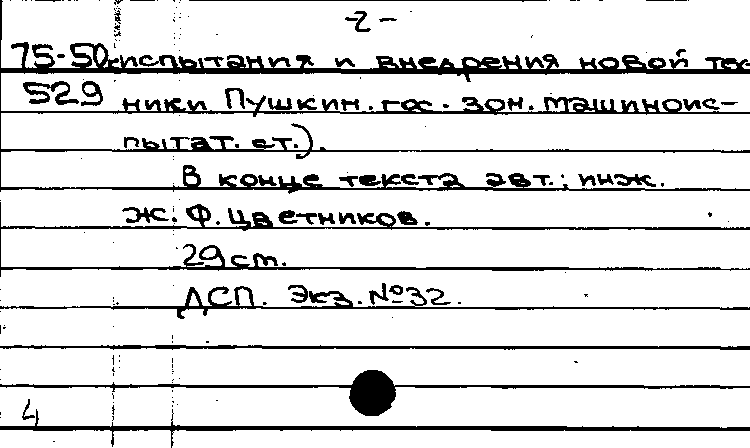 -2-
75-50 испытания и внедрения новой тех-
529 ники Пушкин. гос. зон. машиноис-
пытат. ст.).
В конце текста авт.: инж.
Ж. Ф. Цветников.
29 ст.
ДСП. Экз. №32.
4